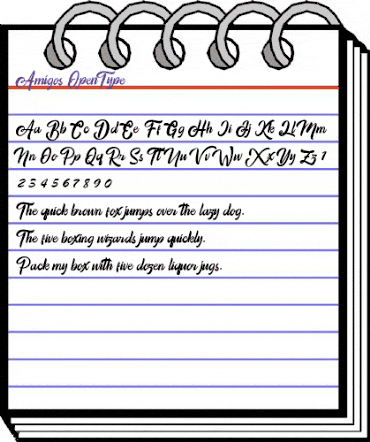 Amigos OpenType
Aa Bb Cc Dd Ee Ff Gg Hh Ii Jj Kk Ll Mm
Nn Oo Pp Qq Rr Ss Tt Uu Vv Ww Xx Yy Zz 1
2 3 4 5 6 7 8 9 0
The quick brown fox jumps over the lazy dog.
The five boxing wizards jump quickly.
Pack my box with five dozen liquor jugs.